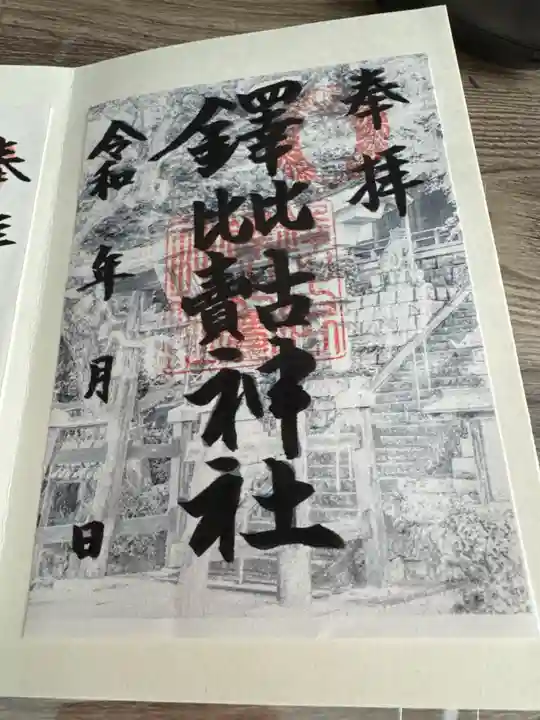 奉拝
鐸
比古
比賣
神社
令和 年 月 日
奉